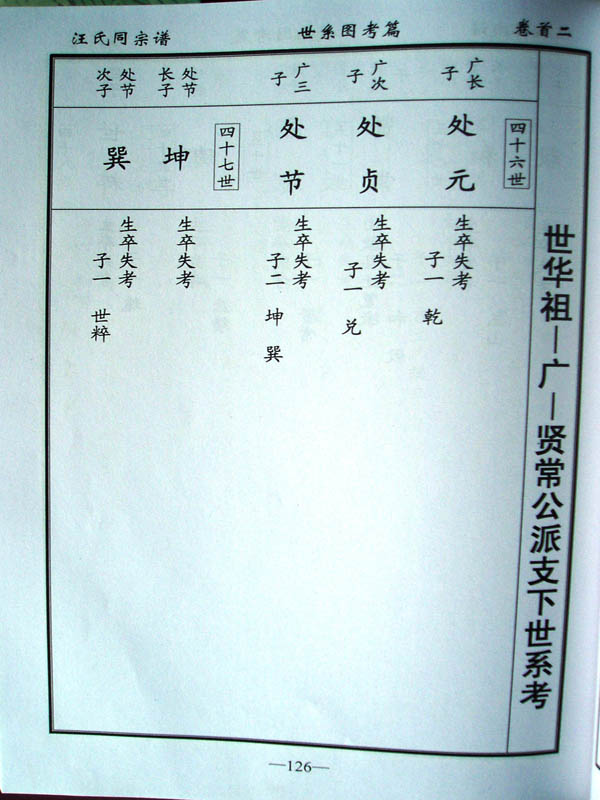 汪氏同宗谱
世系图考篇
卷首二
世华祖—广—贤常公派支下世系考
四十六世
广长子
处元
生卒失考
子一 乾
广次子
处贞
生卒失考
子一 兑
广三子
处节
生卒失考
子二 坤 巽
四十七世
处节长子
坤
生卒失考
处节次子
巽
生卒失考
子一 世粹
—126—